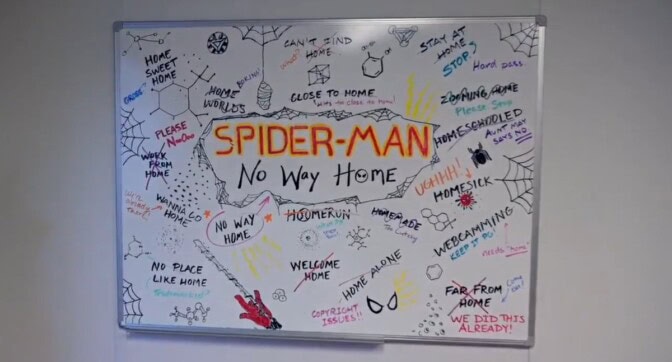 HOME
SWEET
HOME
CAN'T FIND
HOME
STAY AT
HOME
STOP!
Hard pass
HOME
WORLDS
BORING!
CLOSE TO HOME
ZOOMING HOME
Please Stop
PLEASE
SPIDER-MAN
No Way Home
HOMESCHOOLED
AUNT MAY
SAYS NO
WORK
FROM
HOME
UGHHH!
HOMESICK
WANNA GO
HOME
NO WAY
HOME
HOUMERUN
HOMEMADE
WEBCAMMING
KEEP IT PG!
needs "home"
NO PLACE
LIKE HOME
WELCOME
HOME
HOME ALONE
COPYRIGHT
ISSUES!!
FAR FROM
HOME
WE DID THIS
ALREADY!